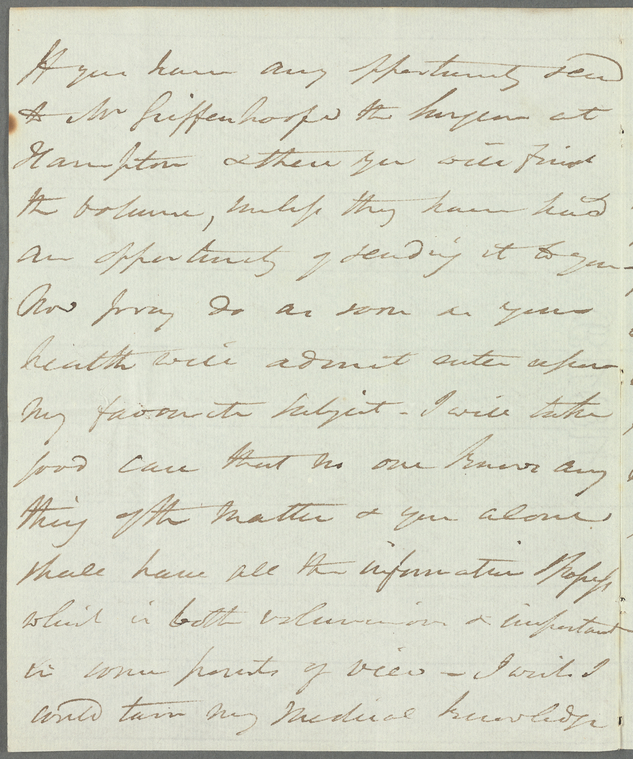 If you have any opportunity send
to Mr Griffenhoofe the Surgeon at
Hampton & there you will find
the volume, unless they have had
an opportunity of sending it to you
Now pray do as soon as your
health will admit enter upon
my favourite subject - I will take
good care that no one knows any
thing of the matter & you alone
shall have all the information I possess
which is both voluminous & important
in some points of view - I wish I
could turn my Medical knowledge